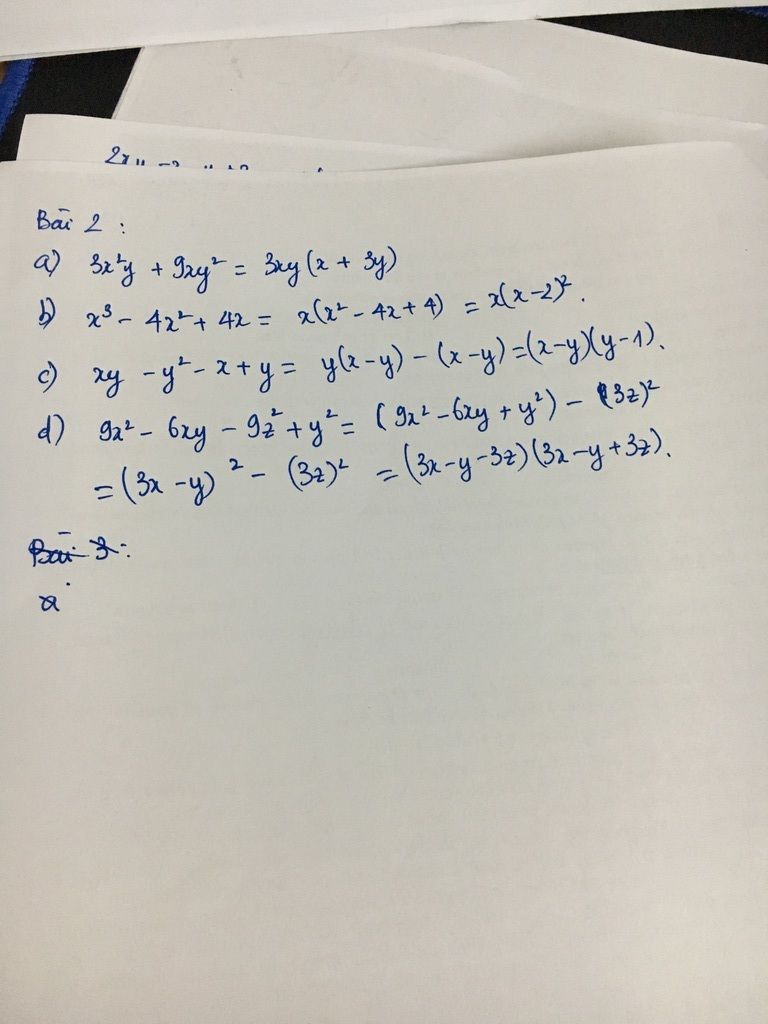 Bài 2 :
a) 3x²y + 9xy² = 3xy(x + 3y)
b) x³ - 4x² + 4x = x(x² - 4x + 4) = x(x-2)².
c) xy - y² - x + y = y(x-y) - (x-y) = (x-y)(y-1).
d) 9x² - 6xy - 9z² + y² = (9x² - 6xy + y²) - (3z)²
= (3x - y)² - (3z)² = (3x-y-3z)(3x-y+3z).
Bài 3:
a